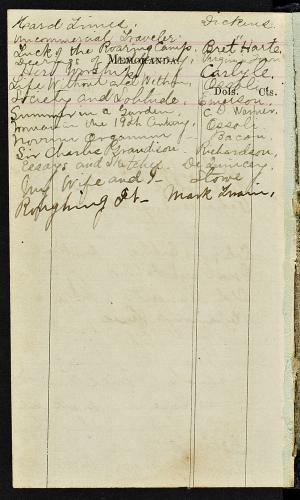 Hard Times. Dickens.
Uncommercial Traveler. "
Luck of the Roaring Camp. Bret Harte.
MEMORANDA.
Hero Worship Carlyle.
Life Without and Within. Ossoli.
Dols. Cts.
Society and Solitude. Emerson.
Summer in a Garden C. D. Warner.
Woman in the 19th Century. Ossoli.
Novum Organum Bacon.
Sir Charles Grandison. Richardson.
Essays and Sketches. De Quincey.
My Wife and I- Stowe
Roughing It- Mark Twain.